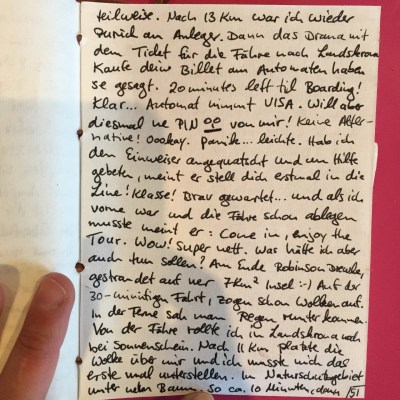 teilweise. Nach 13 Km war ich wieder
zurück am Anleger. Dann das Drama mit
dem Ticket für die Fähre nach Landskrona
Kaufe dein Billet am Automaten haben
se gesagt. 20 minutes left til Boarding!
Klar... Automat nimmt VISA. Will aber
diesmal ne PIN von mir! Keine Alter-
native! Oookay. Panik... leichte. Hab ich
den Einweiser angequatscht und um Hilfe
gebeten, meint er stell dich erstmal in die
Line! Klasse! Brav gewartet... und als ich
vorne war und die Fähre schon ablegen
musste meint er: Come in, enjoy the
Tour. Wow! Super nett. Was hätte ich aber
auch tun sollen? Am Ende Robinson
gestrandet auf ner 7Km² Insel :-) Auf der
30-minütigen Fahrt, zogen schon Wolken auf.
In der Ferne sah man Regen runter kommen.
Von der Fähre rollte ich in Landskrona noch
bei Sonnenschein. Nach 11 Km platzte die
Wolke über mir und ich musste mich das
erste mal unterstellen. Im Naturschutzgebiet
unter nen Baum. So ca. 10 Minuten, dann /51